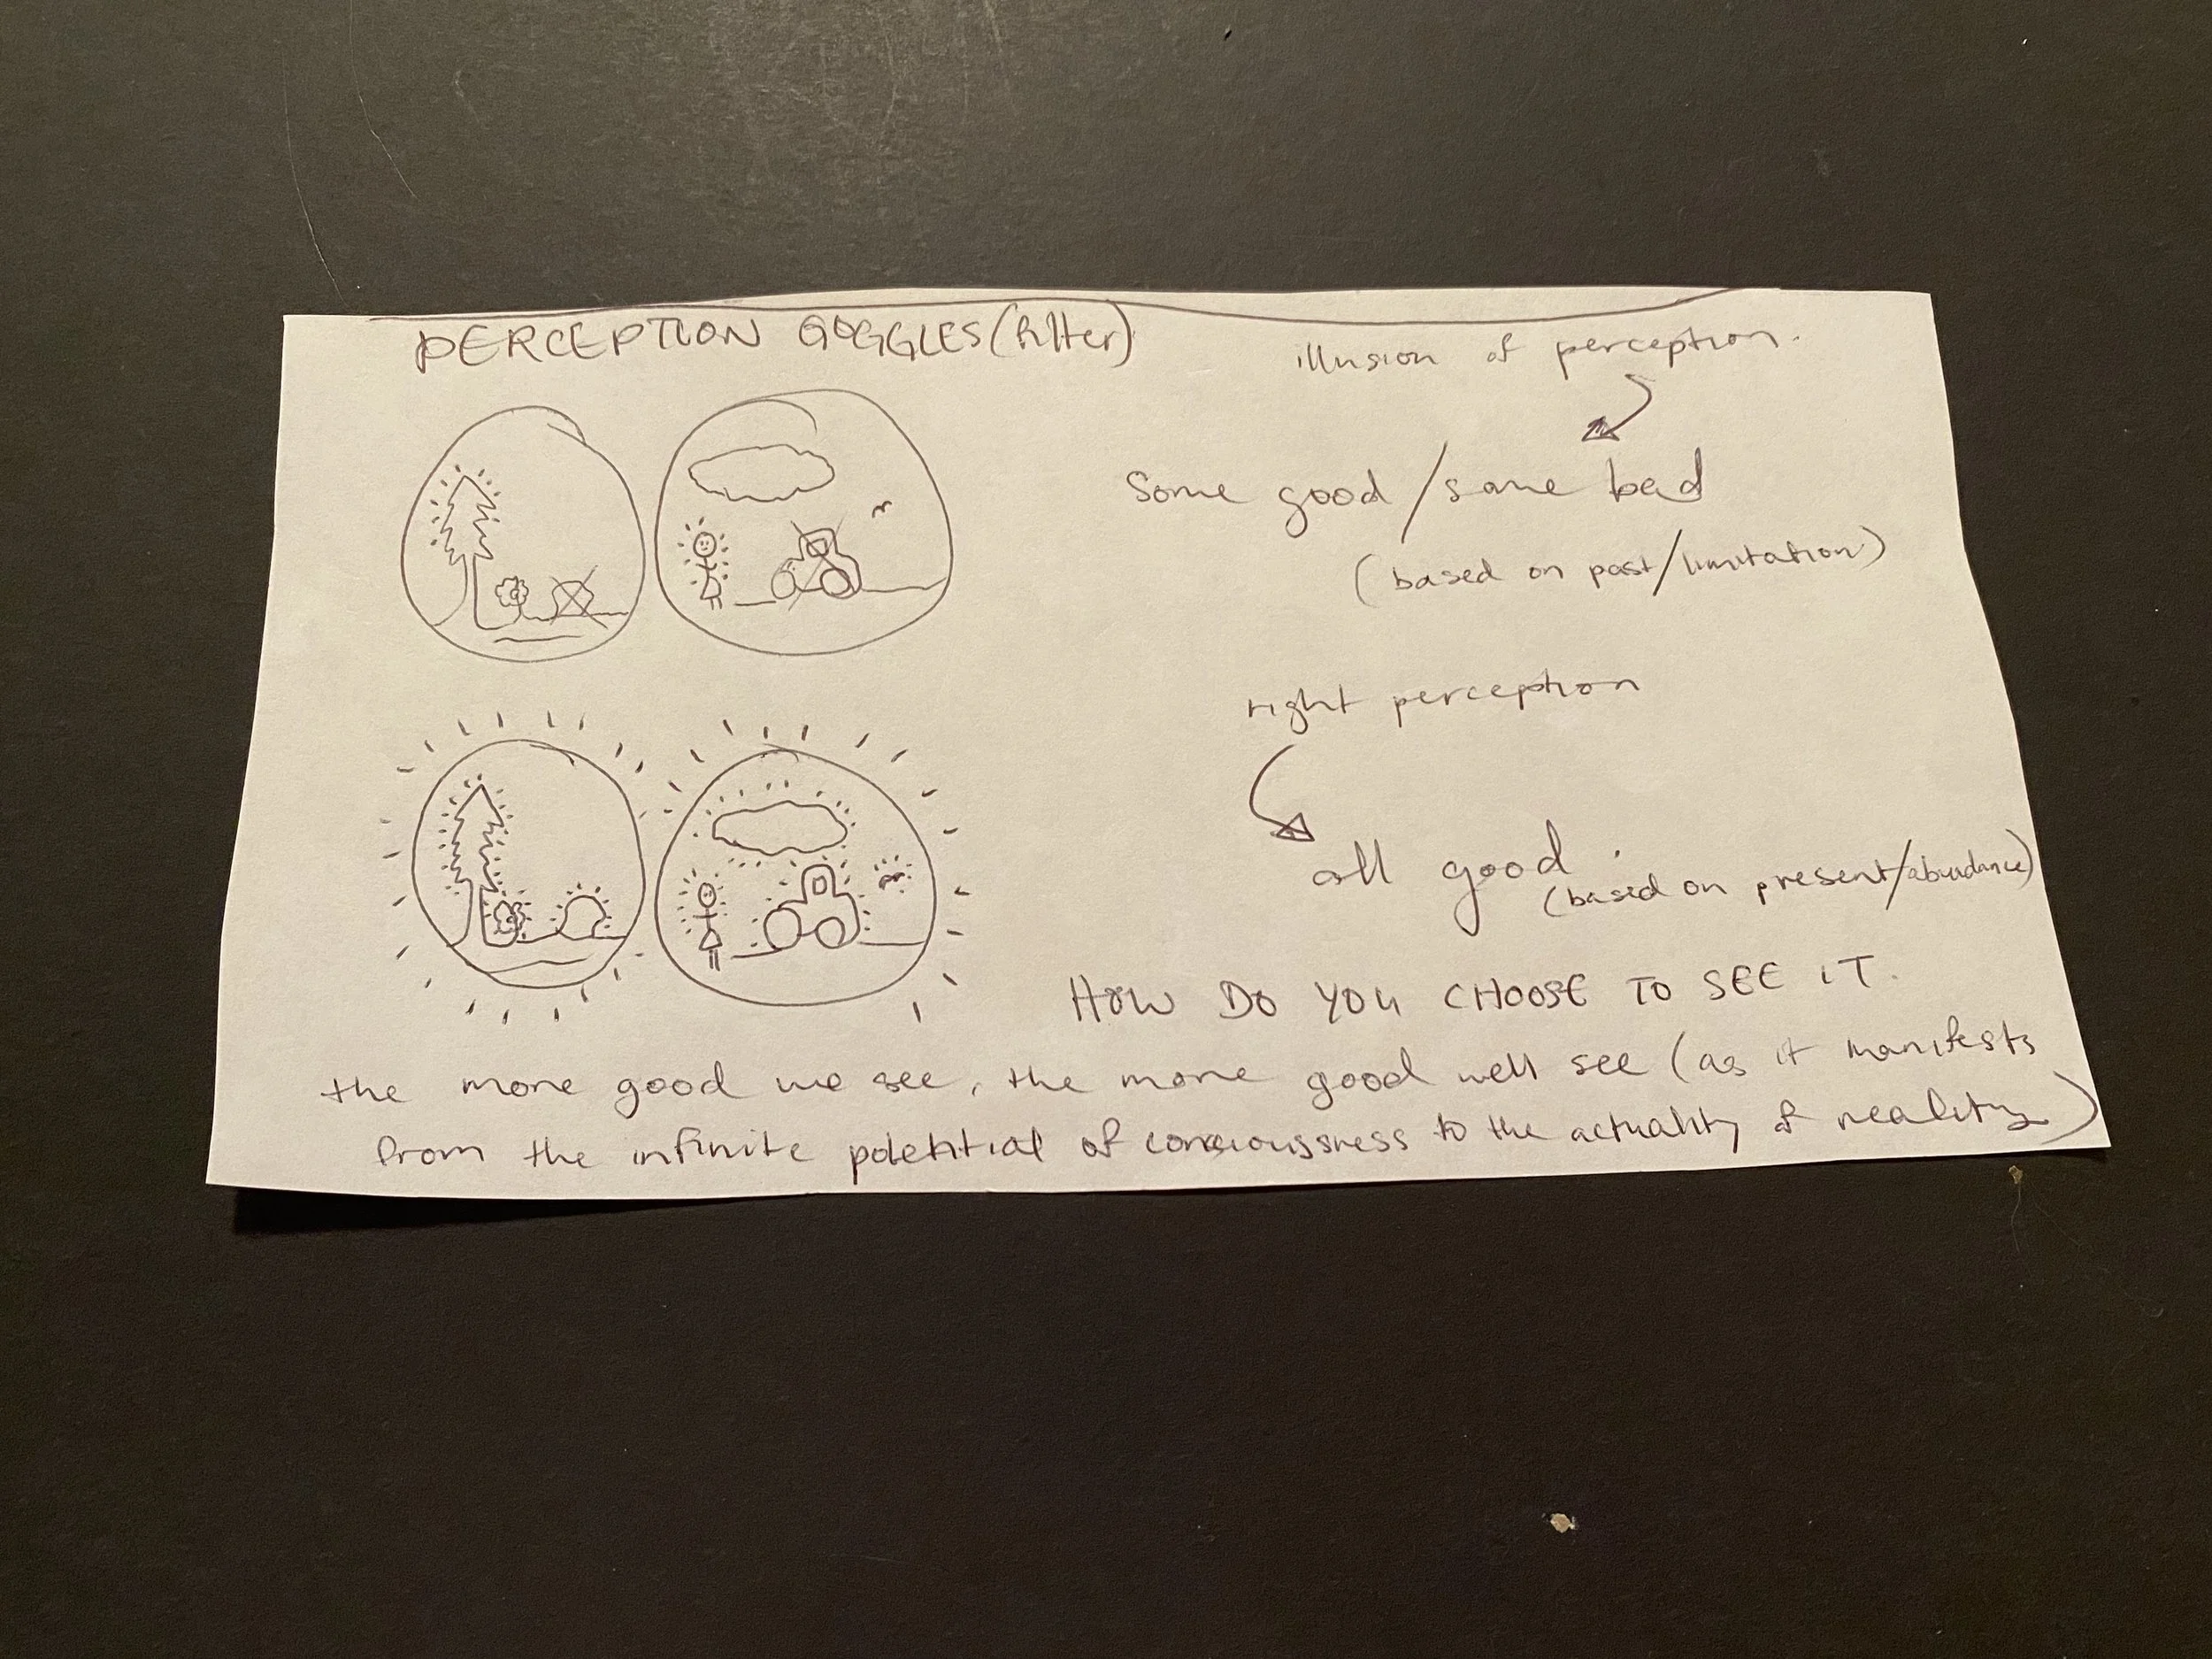 PERCEPTION GOGGLES (filter)
illusion of perception.
Some good / some bad
(based on past/limitation)
right perception
all good.
(based on present/abundance)
HOW DO YOU CHOOSE TO SEE IT.
the more good we see, the more good well see (as it manifests
from the infinite potential of consciousness to the actuality of reality)